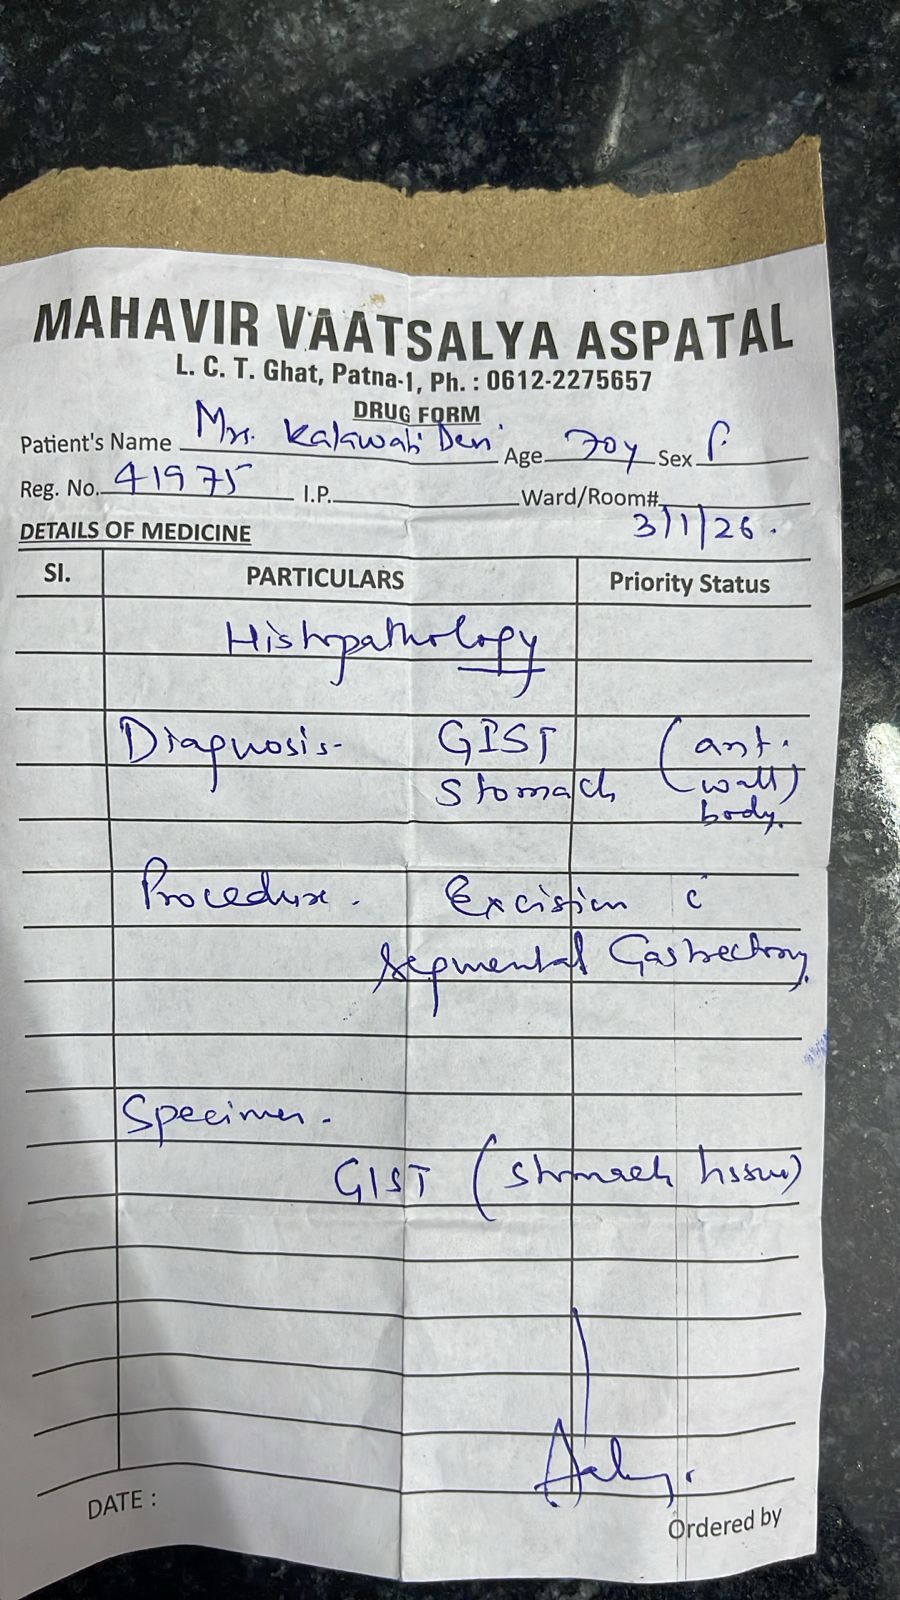 MAHAVIR VAATSALYA ASPATAL
L. C. T. Ghat, Patna-1, Ph. : 0612-2275657
DRUG FORM
Patient's Name Mrs. Kalawati Devi Age 70y Sex F
Reg. No. 41975 I.P. Ward/Room#
3/1/26.
DETAILS OF MEDICINE
Sl. PARTICULARS Priority Status
Histopathology
Diagnosis- GIST (ant.
Stomach wall)
body.
Procedure. Excision c̄
Segmental Gastrectomy.
Specimen.
GIST (stomach tissue)
DATE :
Ordered by